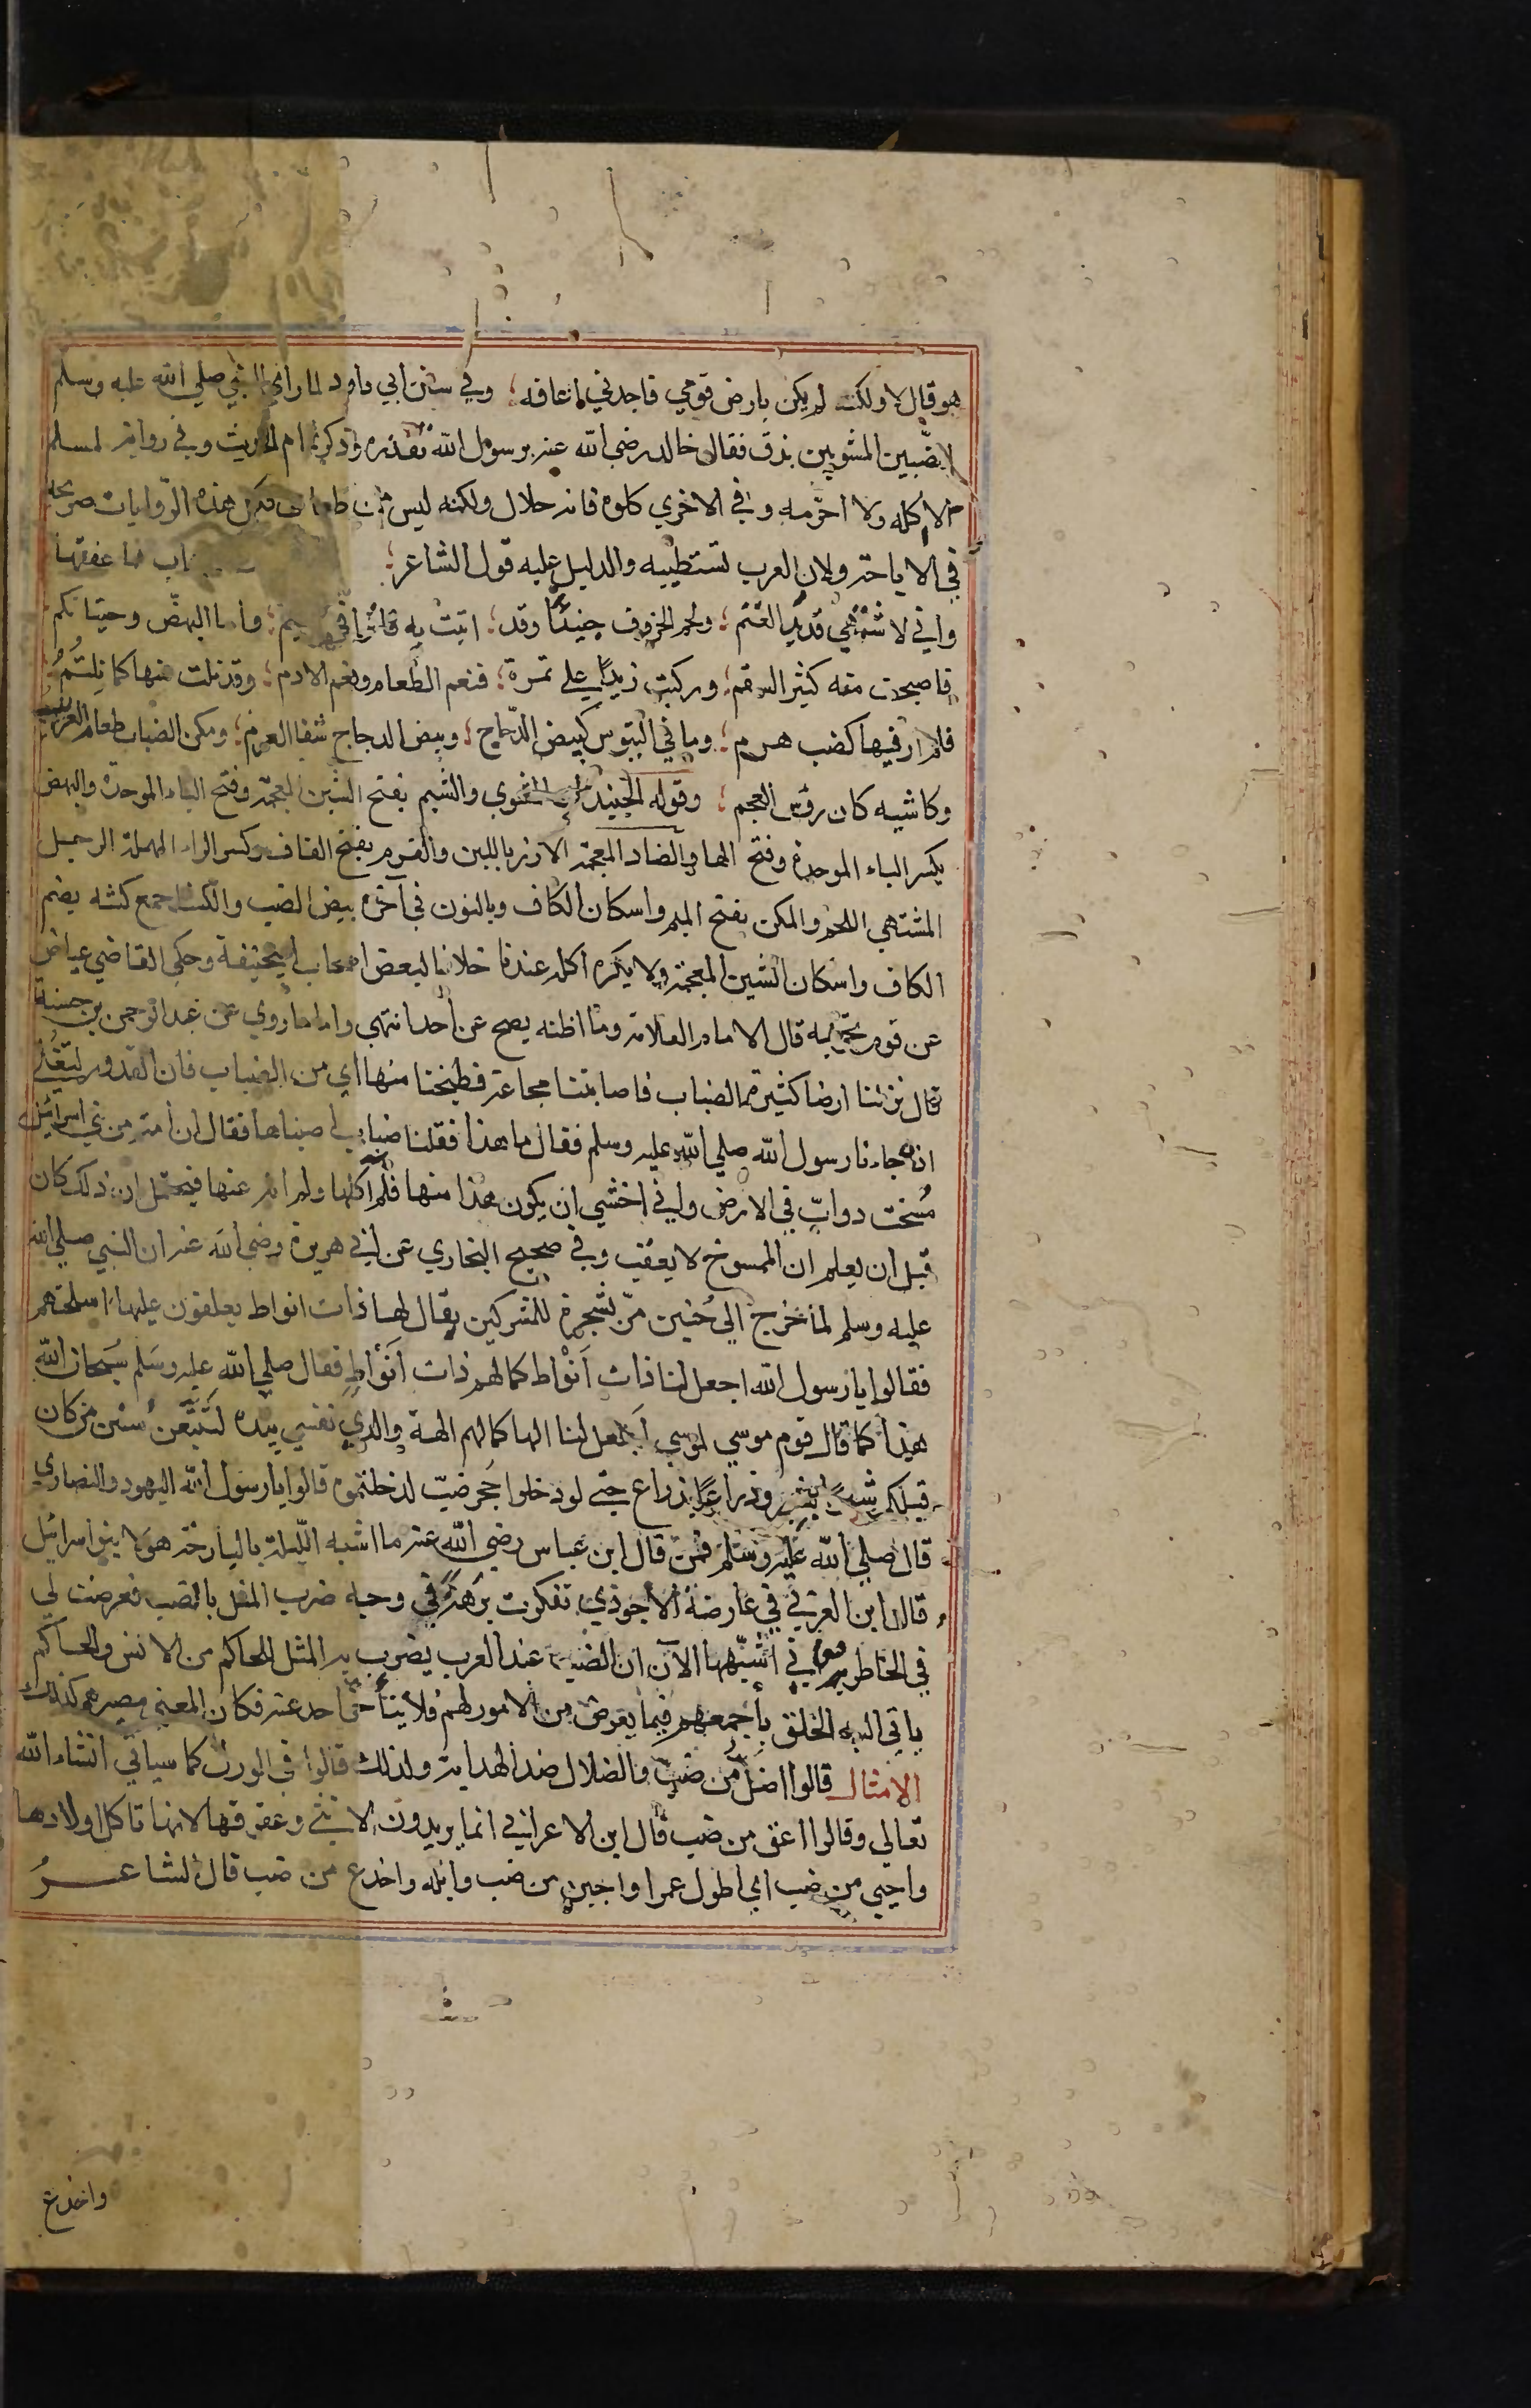 هو قال لا ولكنه لم يكن بارض قومي فاجدني اعافه ؛ وفي سنن ابي داود لما راي النبي صلي الله عليه وسلم
الضّبين المشويين بزق فقال خالد رضي الله عنه يرسول الله تقذره وذكر تمام الحديث وفي رواية لمسلم
لا اكله ولا احرّمه وفي الاخري كلوه فانه حلال ولكنه ليس من طعامي فكل هذه الرّوايات صريحة
في الاباحة ولان العرب تستطيبه والدليل عليه قول الشاعر ؛ اب فما عفتها
واني لاشتهي قديد الغنم ؛ ولحم الخروف حنيذًا وقد ؛ اتيت به فاترا في الشيم ؛ واما البهضّ وحيتانكم
فاصبحت منه كثير السقم ؛ وركبت زبدًا علي تمرة ؛ فنعم الطعام ونعم الادم ؛ وقد نلت منها كما نِلتُمُ ؛
فلم ار فيها كضب هرم ؛ وما في البتوس كبيض الدّجاج ؛ وبيض الدجاج شفا العرم ؛ ومكن الضباب طعام العريب
وكاشيه كان روس العجم ؛ وقوله الحنيذ اي المشوي والشيم بفتح الشين المعجمة وفتح الباء الموحدة والبهض
بكسر الباء الموحدة وفتح الها والضاد المعجمة الارز باللبن والقرم بفتح القاف وكسر الراء المهملة الرجل
المشتهي اللحم والمكن بفتح الميم واسكان الكاف وبالنون في آخره بيض الضب والكشا جمع كشه بضم
الكاف واسكان الشين المعجمة ولا يكره اكله عندنا خلافا لبعض اصحاب ابي حنيفة وحكي القاضي عياض
عن قوم تحريمه قال الامام العلامة وما اظنه يصح عن أحد انتهي واما ما روي عن عبد الرحمن بن حسنة
قال نزلنا ارضا كثيرة الضباب فاصابتنا مجاعة فطبخنا منها اي من الضباب فان القدور لتغلي
اذ جاءنا رسول الله صلي الله عليه وسلم فقال ما هذا فقلنا ضباب اصبناها فقال ان أمة من بني اسرائيل
مُسخت دوابّ في الارض واني اخشي ان يكون هذا منها فلم اكلها ولم انه عنها فيحتمل ان ذلك كان
قبل ان يعلم ان الممسوخ لا يعقب وفي صحيح البخاري عن ابي هريرة رضي الله عنه ان النبي صلي الله
عليه وسلم لما خرج الي حُنين مرّ بشجرة للمشركين يقال لها ذات انواط يعلقون عليها اسلحتهم
فقالوا يا رسول الله اجعل لنا ذات اَنْواط كما لهم ذات اَنْوَاطٍ فقال صلي الله عليه وسَلم سُبحان الله
هذا كما قال قوم موسي لموسي اجعل لنا الها كما لهم الهة والذي نفسي بيده لَتَتَّبَّعُن سنن من كان
قبلكم شبرًا بشبر وذراعًا بذراع حتي لو دخلوا جُحر ضبّ لدخلتموه قالوا يا رسول الله اليهود والنصاري
قال صلي الله عَليه وسَلم فمن قال ابن عباس رضي الله عنه ما اشبه اللّيلة بالبارحة هولا بنو اسرائيل
قال ابن العربي في عارضة الاحوذي تفكرت برهَة في وجه ضرب المثل بالضب فعرضت لي
في الخاطر معاني اشبّهها الآن ان الضب عند العرب يضرب به المثل للحاكم من الانس والحاكم
ياتي اليه الخلق بأجمعهم فيما يعرض من الامور لهم فلا يتأخر احد عنه فكان المعني مصيرهم كذلك
الامثال قالوا اضَلّ من ضبّ والضلال ضد الهداية ولذلك قالوا في الورل كما سياتي انشاء الله
تعالي وقالوا اعق من ضب قال ابن الاعرابي انما يريدون الانثي وعقوقها لانها تاكل اولادها
واحيي من ضب اي اطول عمرا واجبن من ضب وابله واخدع من ضب قال الشاعرُ
واخدع